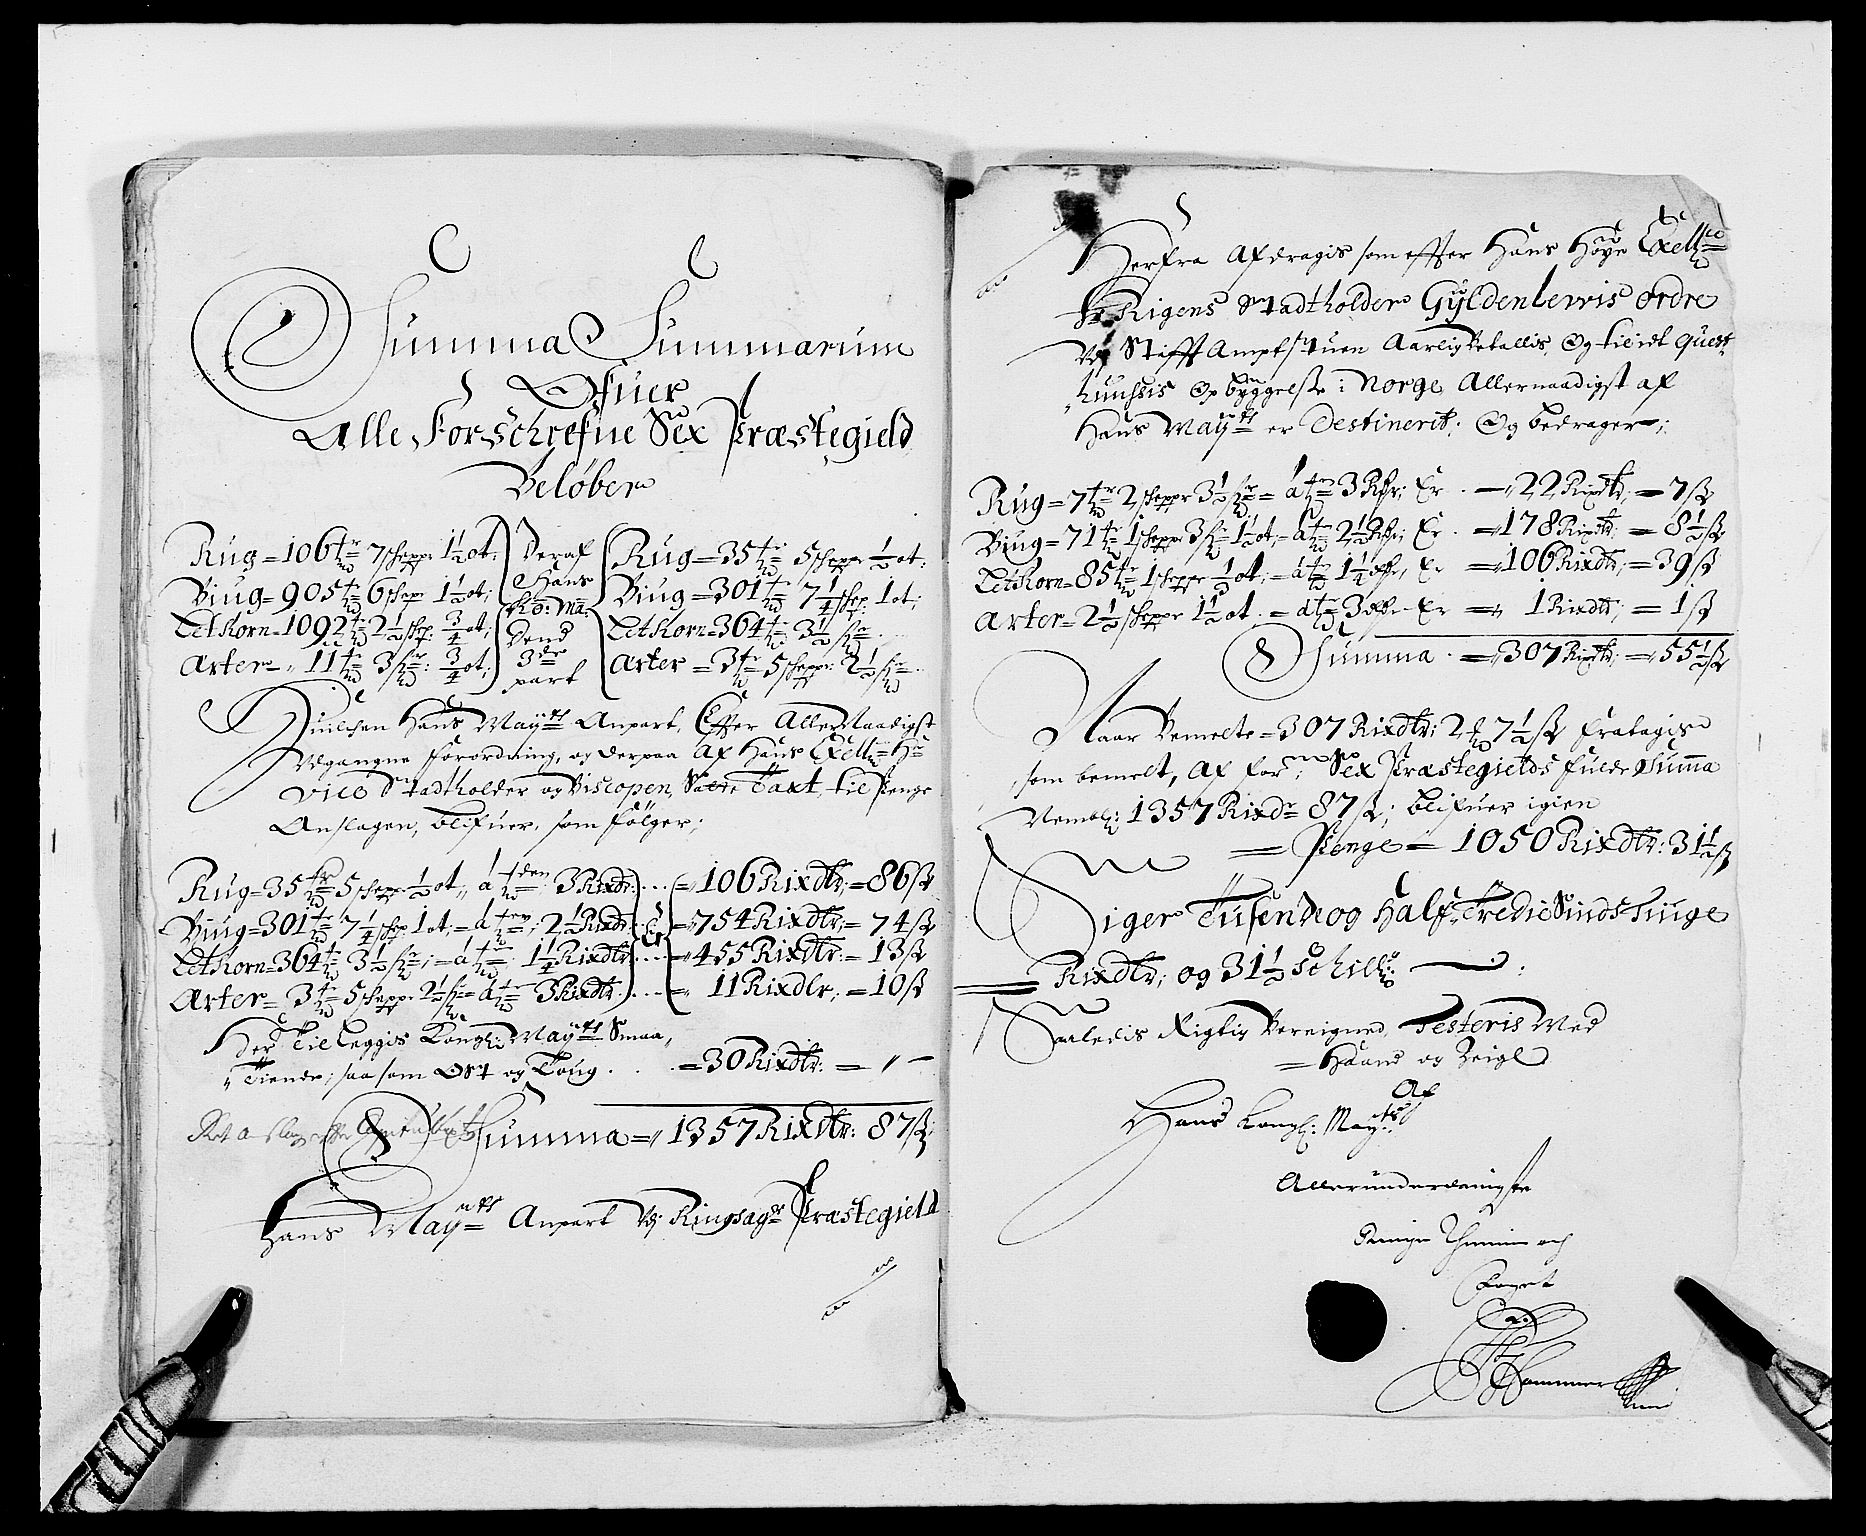 Summa Summarum
Ofuer
Alle Forschrefne Sex Præstegield
Beløber
Rug = 106 tr 7 schepr 1½ ot;
Biug = 905 tr 6 schepr 1½ ot;
Letkorn = 1092 tr 2½ schp: ¾ ot;
Arter = 11 tr 3 fr: ¾ ot;
Deraf
Hans
Ko: Ma:
Dend
3die
part
Rug = 35 tr 5 schepr ½ ot:
Biug = 301 tr 7¼ schp: 1 ot;
Letkorn = 364 tr 3½ fr
Arter = 3 tr 5 schepr: 2½ fr
Huilchen Hans Mayts Anpart, Effter Allernaadigst
Udgangne forordning, og derpaa af Hans Excell: Hr
Vice Stadtholder og Biscopen, Satte Taxt, til Penge
Anslagen, blifuer, som følger;
Rug = 35 tr 5 schepr ½ ot, á tden 3 Rixdr: = 106 Rixdlr: = 86 ß
Biug = 301 tr 7¼ schp 1 ot; = á ten; 2½ Rixdr: Er = 754 Rixdlr: = 74 ß
Letkorn = 364 tr 3½ fr; = á tn 1¼ Rixdlr: = 455 Rixdlr: = 13 ß
Arter = 3 tr 5 schepr: 2½ fr = á tn 3 Rixdlr = 11 Rixdlr; = 10 ß
Der Tilleggis Kongl: Mayts Smaa,
Tiende; saa som Ost og Toug = 30 Rixdlr: = " —
Summa = 1357 Rixdlr: 87 ß;
Hans Mayts Anpart Udj Ringsager Præstegield
Herfra Afdragis som effter Hans Høye Excell
Hr Rigens Stadtholder Gyldenlewis ordre
Udj Stifft Ampt stuen Aarlig betallis, Og til idt Quest
huusis Opbyggelse i Norge Allernaadigst af
Hans Mayts er Destinerit; Og bedrager;
Rug = 7 tr 2 schepr 3½ fr = á tn 3 Rdr; Er = 22 Rixdlr; = 7 ß
Biug = 71 tr 1 schepr 3 fr 1½ ot; = á tn 2½ Rdr; Er = 178 Rixdlr: = 8½ ß
Letkorn = 85 tr 1 schepr ½ ot; = á tn 1¼ Rdr, Er = 106 Rixdlr; = 39 ß
Arter = 2½ schepr 1½ ot = á tn 3 Rdr Er = 1 Rixdlr; = 1 ß
Summa = 307 Rixdlr; = 55½ ß
Naar Bemelte = 307 Rixdlr: 2 7½ ß fratagis
som bemelt, af for: Sex Præstegields fulde Summa
Nembl: 1357 Rixdr 87 ß; blifuer igien
= Penge = 1050 Rixdlr: 31½ ß
Siger Tusende og Half Tredie Sinds Tiuge
Rixdlr; og 31½ Schill:
Saaledis Rigtig Bereigned, Testeris Med
= Haand og Zeigl
Af
Hans Kongl: Mayts
Allerunderdanigste